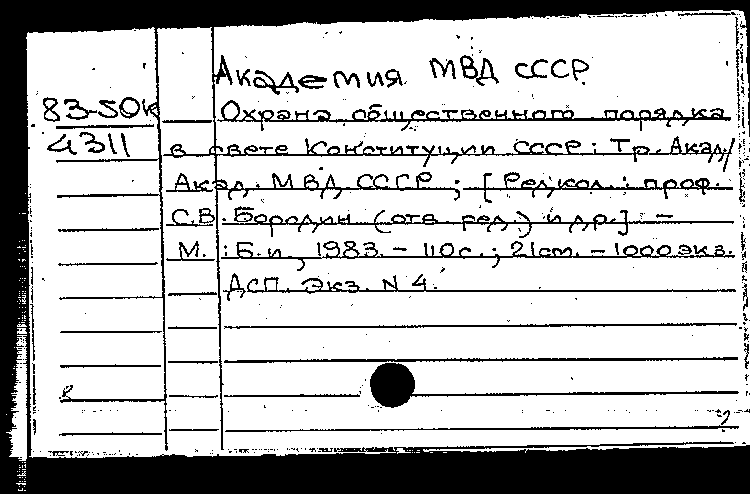 Академия МВД СССР
83-50к Охрана общественного порядка
4311 в свете Конституции СССР: Тр. Акад/
Акад. МВД СССР ; [Редкол.: проф.
С.В. Бородин (отв. ред.) и др.] –
М. : Б.и, 1983. – 110с.; 21см. – 1000экз.
ДСП. Экз. N 4.